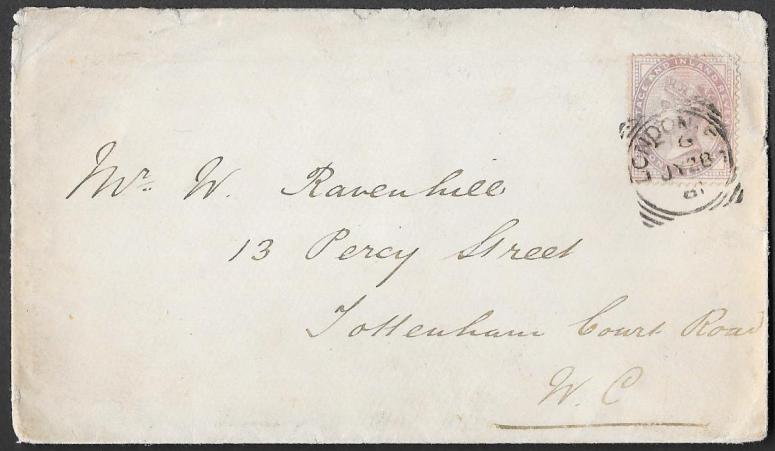 Mr. W. Ravenhill
13 Percy Street
Tottenham Court Road
W. C
POSTAGE AND INLAND REVENUE
LONDON
G
JY 28
81